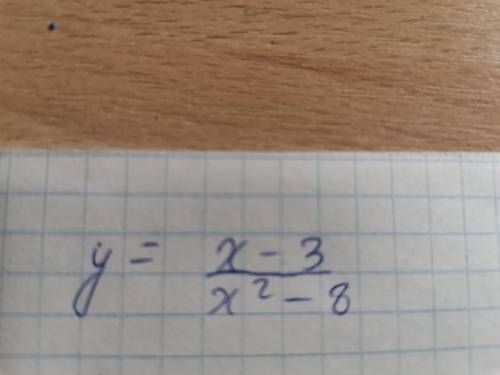 y = \frac{x - 3}{x^2 - 8}